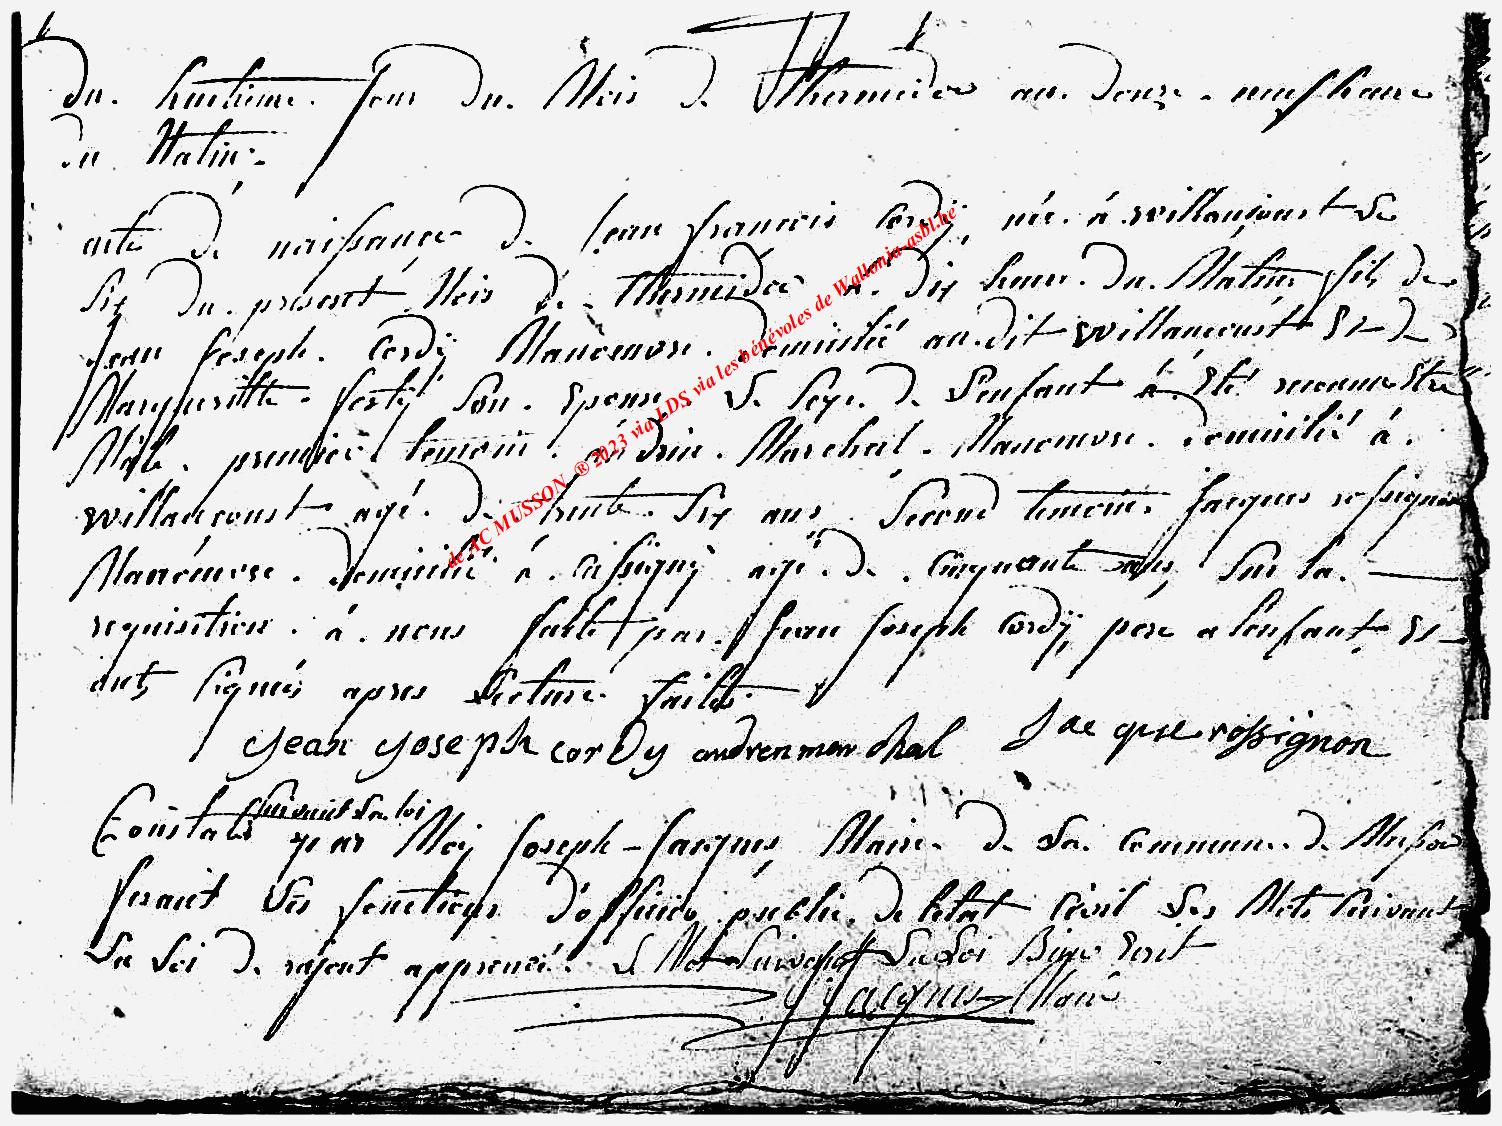 du huitieme jour du Mois de Thermidor an douze neuf heure
du Matin
acte de naissance de jean francois Cordÿ née à willancourt Le
Six du présent Mois de Thermidor à dix heure du Matin fils de
Jean Joseph Cordÿ Manoeuvre domicilié audit willancourt Et de
Margueritte son Epouse Le Sexe de L'enfant à Eté reconnu Etre
Male premier temoin Marchal Manoeuvre domicilié à
willancourt agé de trente Six ans Second temoin Jacques rossignon
Manoeuvre domicilié à agé de Cinquante ans Sur la
requisition à nous faite par Jean Joseph Cordÿ pere a Lenfant Et
ont Signés apres Lecture faite
Jean Joseph cordy marchal Jacque rossignon
Suivant La loi
Constaté par Moÿ Joseph Jacques Maire de La Commune de Musson
fesant Les fonctions d'officier public de letat Civil Les Mots Suivant
La Loi de rejout approuvé Le Mot Suivant La Loi Bien Ecrit
Jacques Maire
de AC MUSSON ® 2023 via LDS via les bénévoles de Wallonia-asbl.be